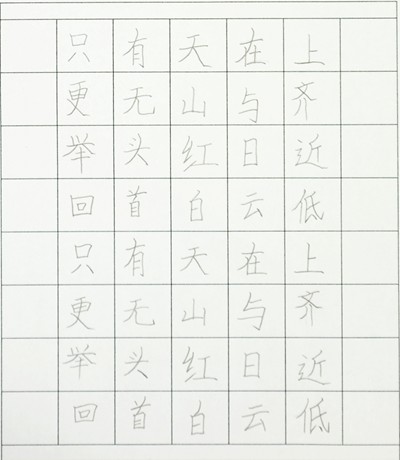 只有天在上
更无山与齐
举头红日近
回首白云低
只有天在上
更无山与齐
举头红日近
回首白云低